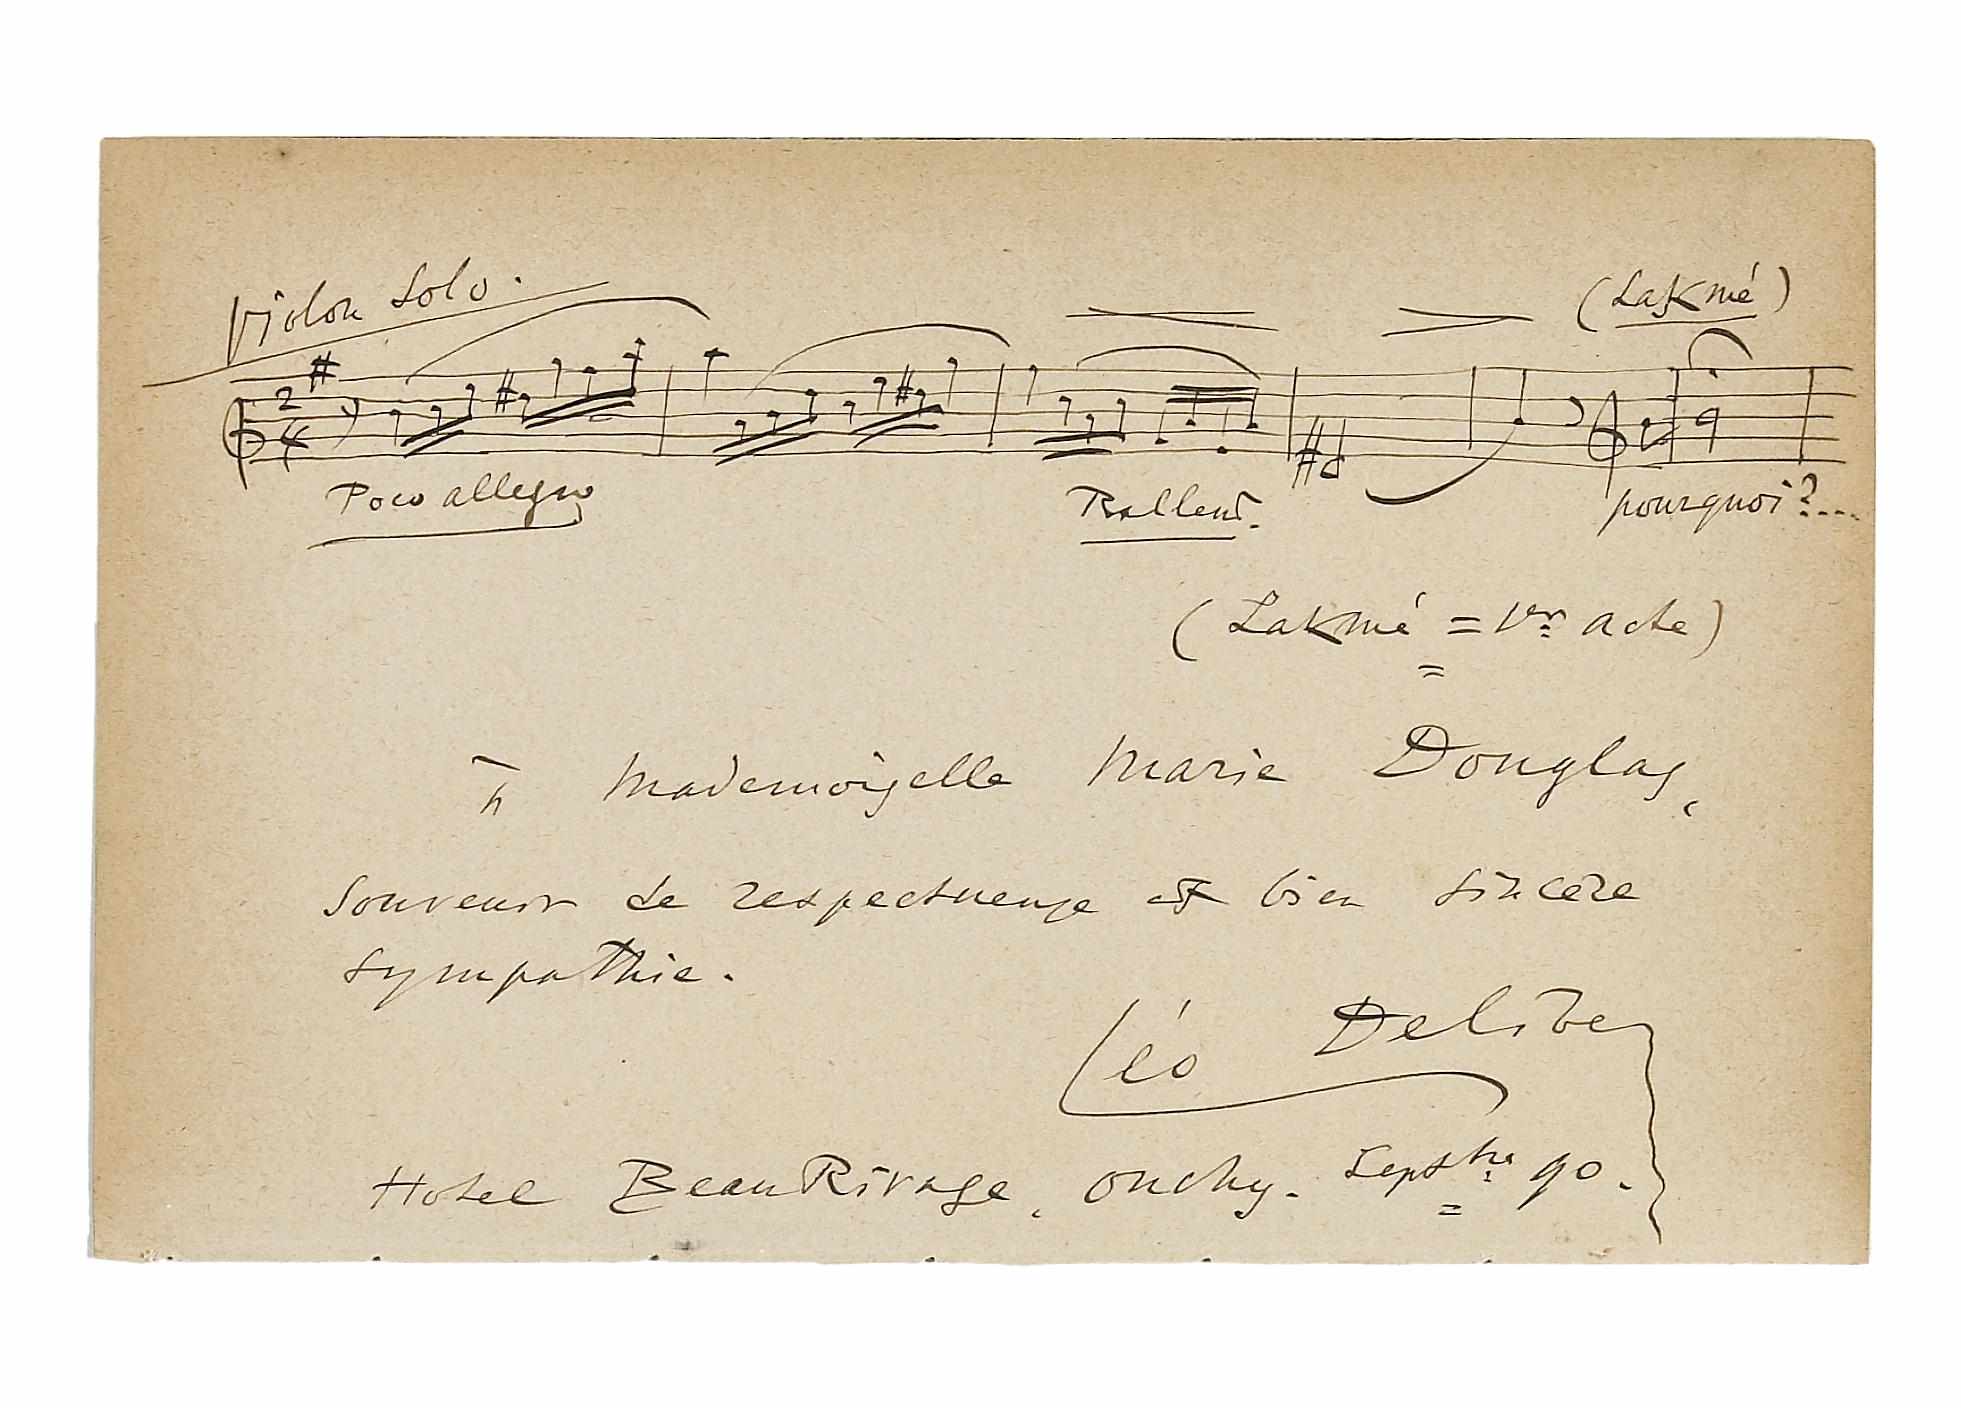 Violon Solo.
(Lakmé)
2
4
Poco allegro
Rallent.
pourquoi?...
(Lakmé = 1er acte)
à Mademoiselle Marie Douglas,
Souvenir de respectueuse et bien sincère
sympathie.
Léo Delibes
Hotel Beau Rivage, Ouchy. Septbre 90.